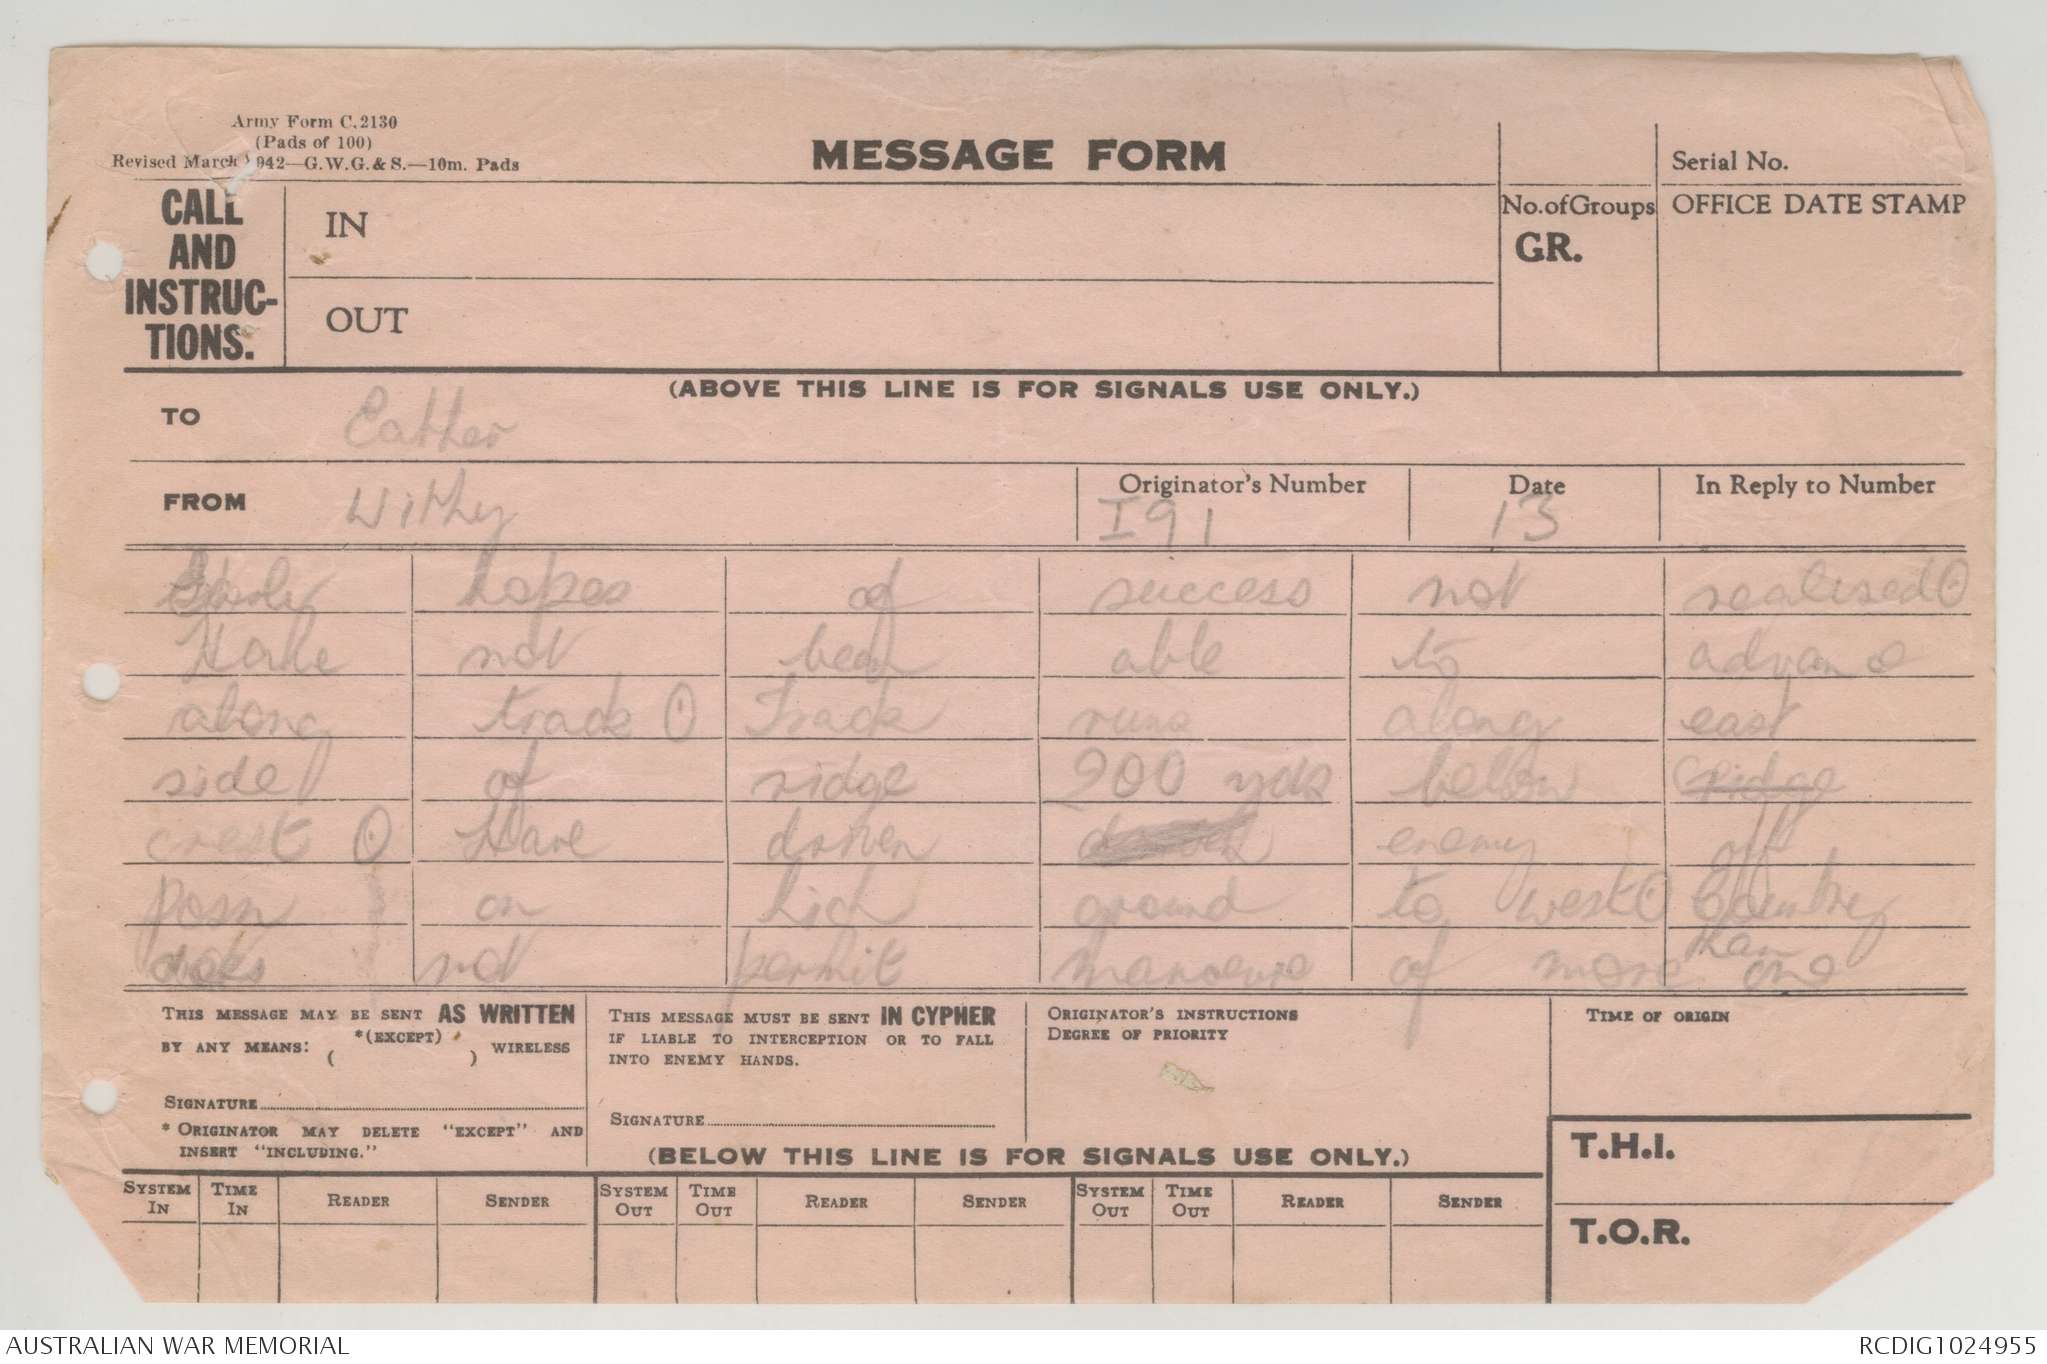 Army Form C.2130
(Pads of 100)
Revised March 1942—G.W.G.& S.—10m. Pads
MESSAGE FORM
Serial No.
CALL AND INSTRUC- TIONS.
IN
No. of Groups
GR.
OFFICE DATE STAMP
OUT
(ABOVE THIS LINE IS FOR SIGNALS USE ONLY.)
TO Eather
FROM Withy
Originator's Number I91
Date 13
In Reply to Number
Early hopes of success not realised ʘ
Have not been able to advance
along track ʘ Track runs along east
side of ridge 200 yds below ridge
crest ʘ Have driven enemy off
posn on high ground to west ʘ Country
does not permit manoevre of more than one
THIS MESSAGE MAY BE SENT AS WRITTEN
BY ANY MEANS: *(EXCEPT) ( ) WIRELESS
SIGNATURE
* ORIGINATOR MAY DELETE "EXCEPT" AND
INSERT "INCLUDING."
THIS MESSAGE MUST BE SENT IN CYPHER
IF LIABLE TO INTERCEPTION OR TO FALL
INTO ENEMY HANDS.
SIGNATURE
ORIGINATOR'S INSTRUCTIONS
DEGREE OF PRIORITY
TIME OF ORIGIN
(BELOW THIS LINE IS FOR SIGNALS USE ONLY.)
T.H.I.
T.O.R.
SYSTEM IN TIME IN READER SENDER SYSTEM OUT TIME OUT READER SENDER SYSTEM OUT TIME OUT READER SENDER
AUSTRALIAN WAR MEMORIAL
RCDIG1024955